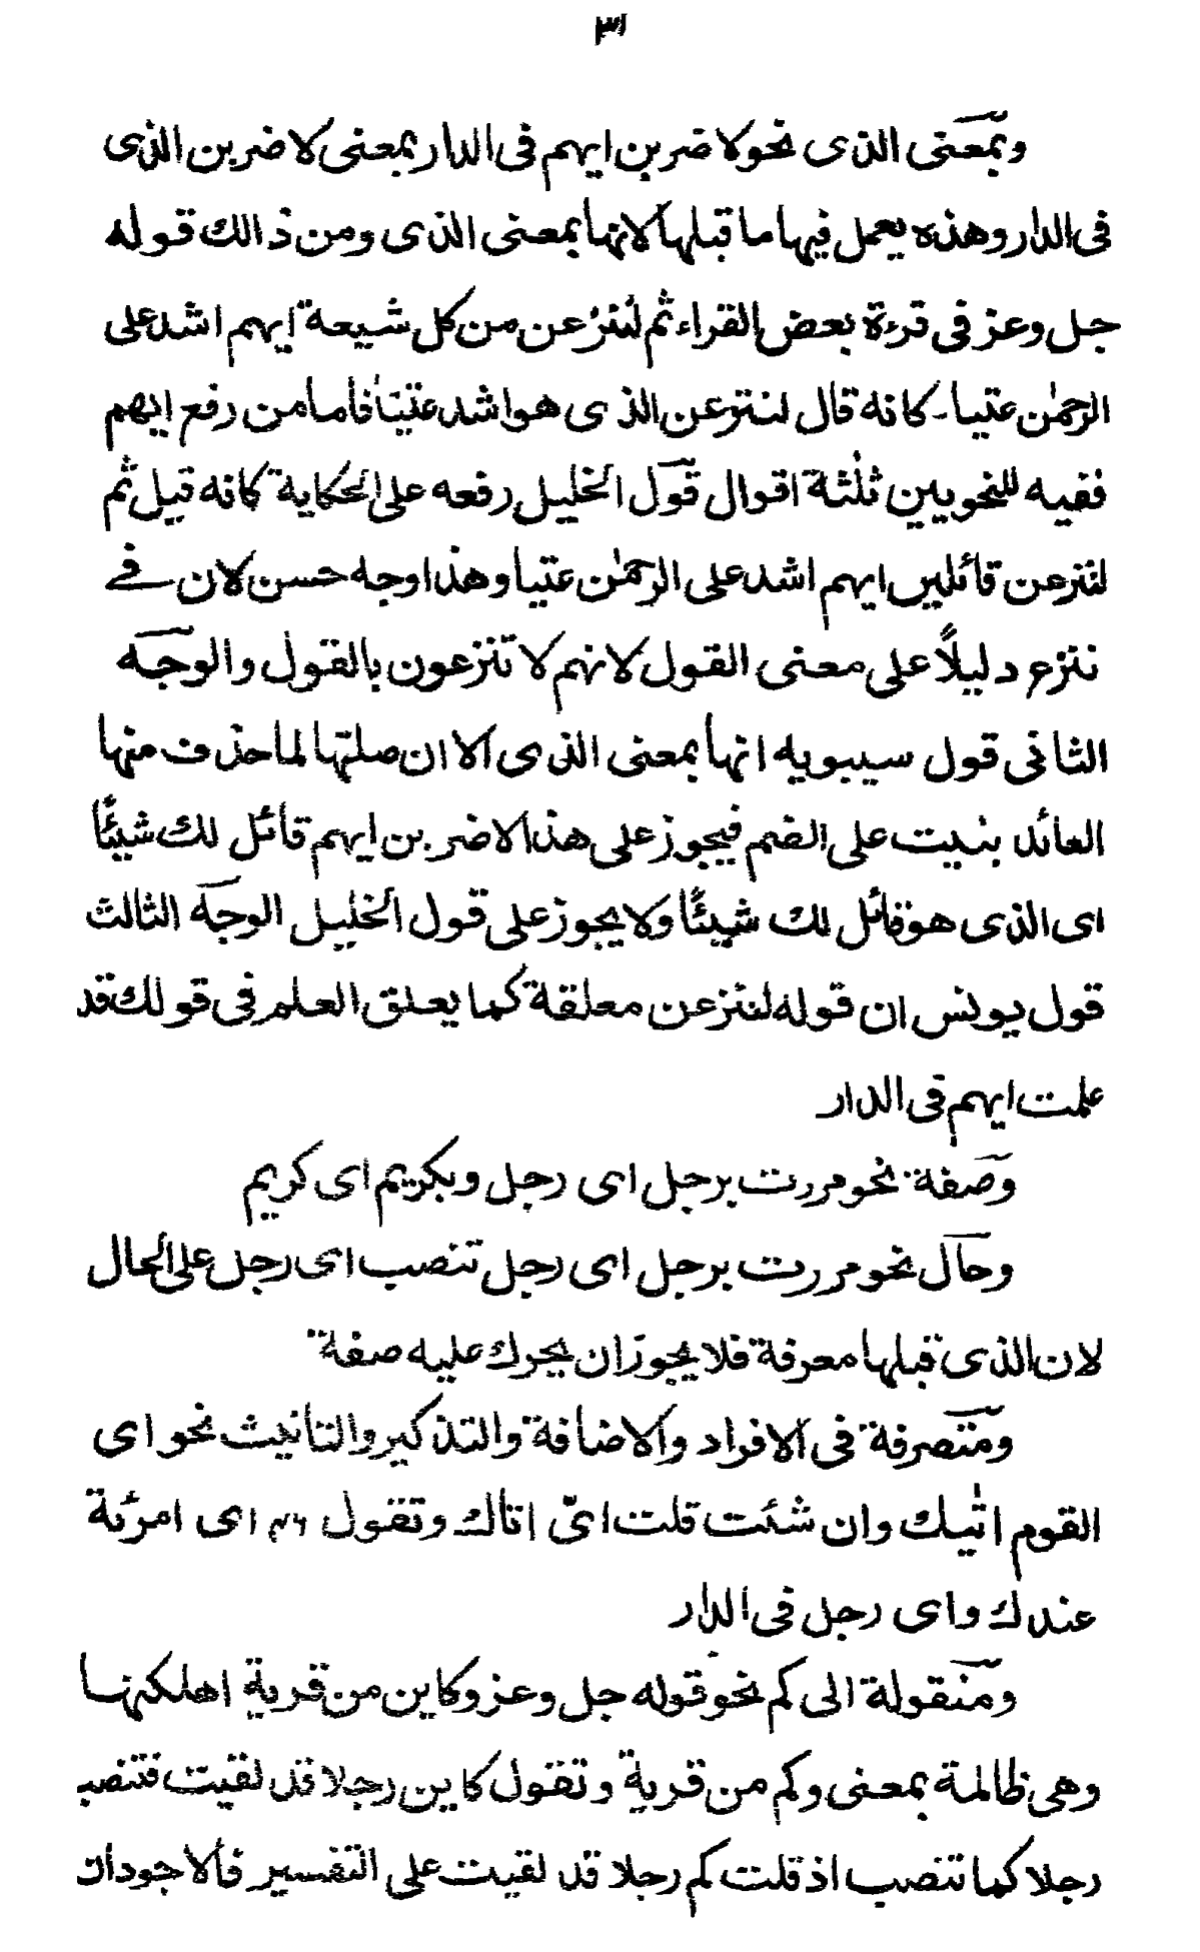 ٣١
وبمعنى الذى نحو لاضربن ايهم فى الدار بمعنى لاضربن الذى
فى الدار وهذه يعمل فيها ما قبلها لانها بمعنى الذى ومن ذالك قوله
جل وعز فى قرءة بعض القراء ثم لننزعن من كل شيعة ايهم اشد على
الرحمٰن عتيا۔ كانه قال لننزعن الذى هو اشد عتيّا فأما من رفع ايهم
ففيه للنحويين ثلٰثة اقوال قول الخليل رفعه على الحكاية كانه قيل ثم
لننزعن قائلين ايهم اشد على الرحمٰن عتيا وهذا وجه حسن لان فى
ننزع دليلاً على معنى القول لانهم لا تنزعون بالقول والوجه
الثانى قول سيبويه انها بمعنى الذى الا ان صلتها لما حذف منها
العائد بنيت على الضم فيجوز على هذا لاضربن ايهم قائل لك شيئًا
اى الذى هو قائل لك شيئًا ولا يجوز على قول الخليل الوجه الثالث
قول يونس ان قوله لننزعن معلقة كما يعلق العلم فى قولك قد
علمت ايهم فى الدار
وصفة نحو مررت برجل اى رجل وبكريم اى كريم
وحال نحو مررت برجل اى رجل تنصب اى رجل على الحال
لان الذى قبلها معرفة فلا يجوز ان يجرك عليه صفة
ومتصرفة فى الافراد والاضافة والتذكير والتانيث نحو اى
القوم اتٰيك وان شئت قلت اىّ اتاك وتقول اى امرئة
عندك واى رجل فى الدار
ومنقولة الى كم نحو قوله جل وعز وكاين من قرية اهلكنها
وهى ظالمة بمعنى وكم من قرية وتقول كاين رجلا قد لقيت فتنصب
رجلا كما تنصب اذ قلت كم رجلا قد لقيت على التفسير فألاجودان